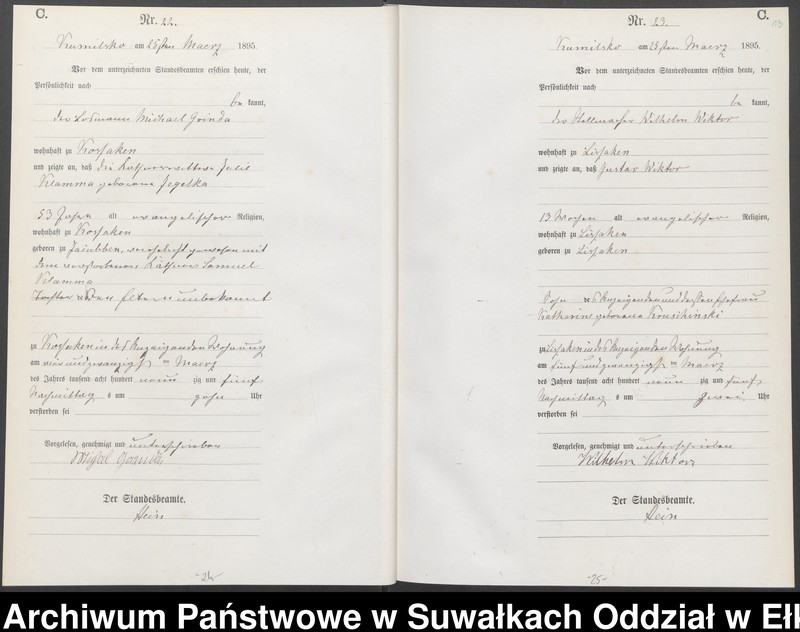 C.
Nr. 22.
Kumilsko am 25ten Maerz 1895.
Vor dem unterzeichneten Standesbeamten erschien heute, der
Persönlichkeit nach
be kannt,
der Losmann Michael
wohnhaft zu Kossaken
und zeigte an, daß die Käthnerwittwe Julie
Klamma geborene Jegelka
53 Jahre alt evangelischer Religion,
wohnhaft zu Kossaken
geboren zu verehelicht gewesen mit
dem verstorbenen Käthner Samuel
Klamma
Tochter der Eltern unbekannt
zu Kossaken in des Anzeigenden Wohnung
am vier und zwanzigst en Maerz
des Jahres tausend acht hundert neun zig und fünf
Nachmittag s um zehn Uhr
verstorben sei
Vorgelesen, genehmigt und unterschrieben
Der Standesbeamte.
Hein
-24-
C.
Nr. 23.
Kumilsko am 25ten Maerz 1895.
Vor dem unterzeichneten Standesbeamten erschien heute, der
Persönlichkeit nach
be kannt,
der Stellmacher Wilhelm Wiktor
wohnhaft zu Lissaken
und zeigte an, daß Gustav Wiktor
13 Wochen alt evangelischer Religion,
wohnhaft zu Lissaken
geboren zu Lissaken
Sohn des Anzeigenden und dessen Ehefrau
Katharine geborene
zu Lissaken in des Anzeigenden Wohnung
am fünf und zwanzigst en Maerz
des Jahres tausend acht hundert neun zig und fünf
Nachmittag s um zwei Uhr
verstorben sei
Vorgelesen, genehmigt und unterschrieben
Wilhelm Wiktor
Der Standesbeamte.
Hein
-25-
Archiwum Państwowe w Suwałkach Oddział w Eł